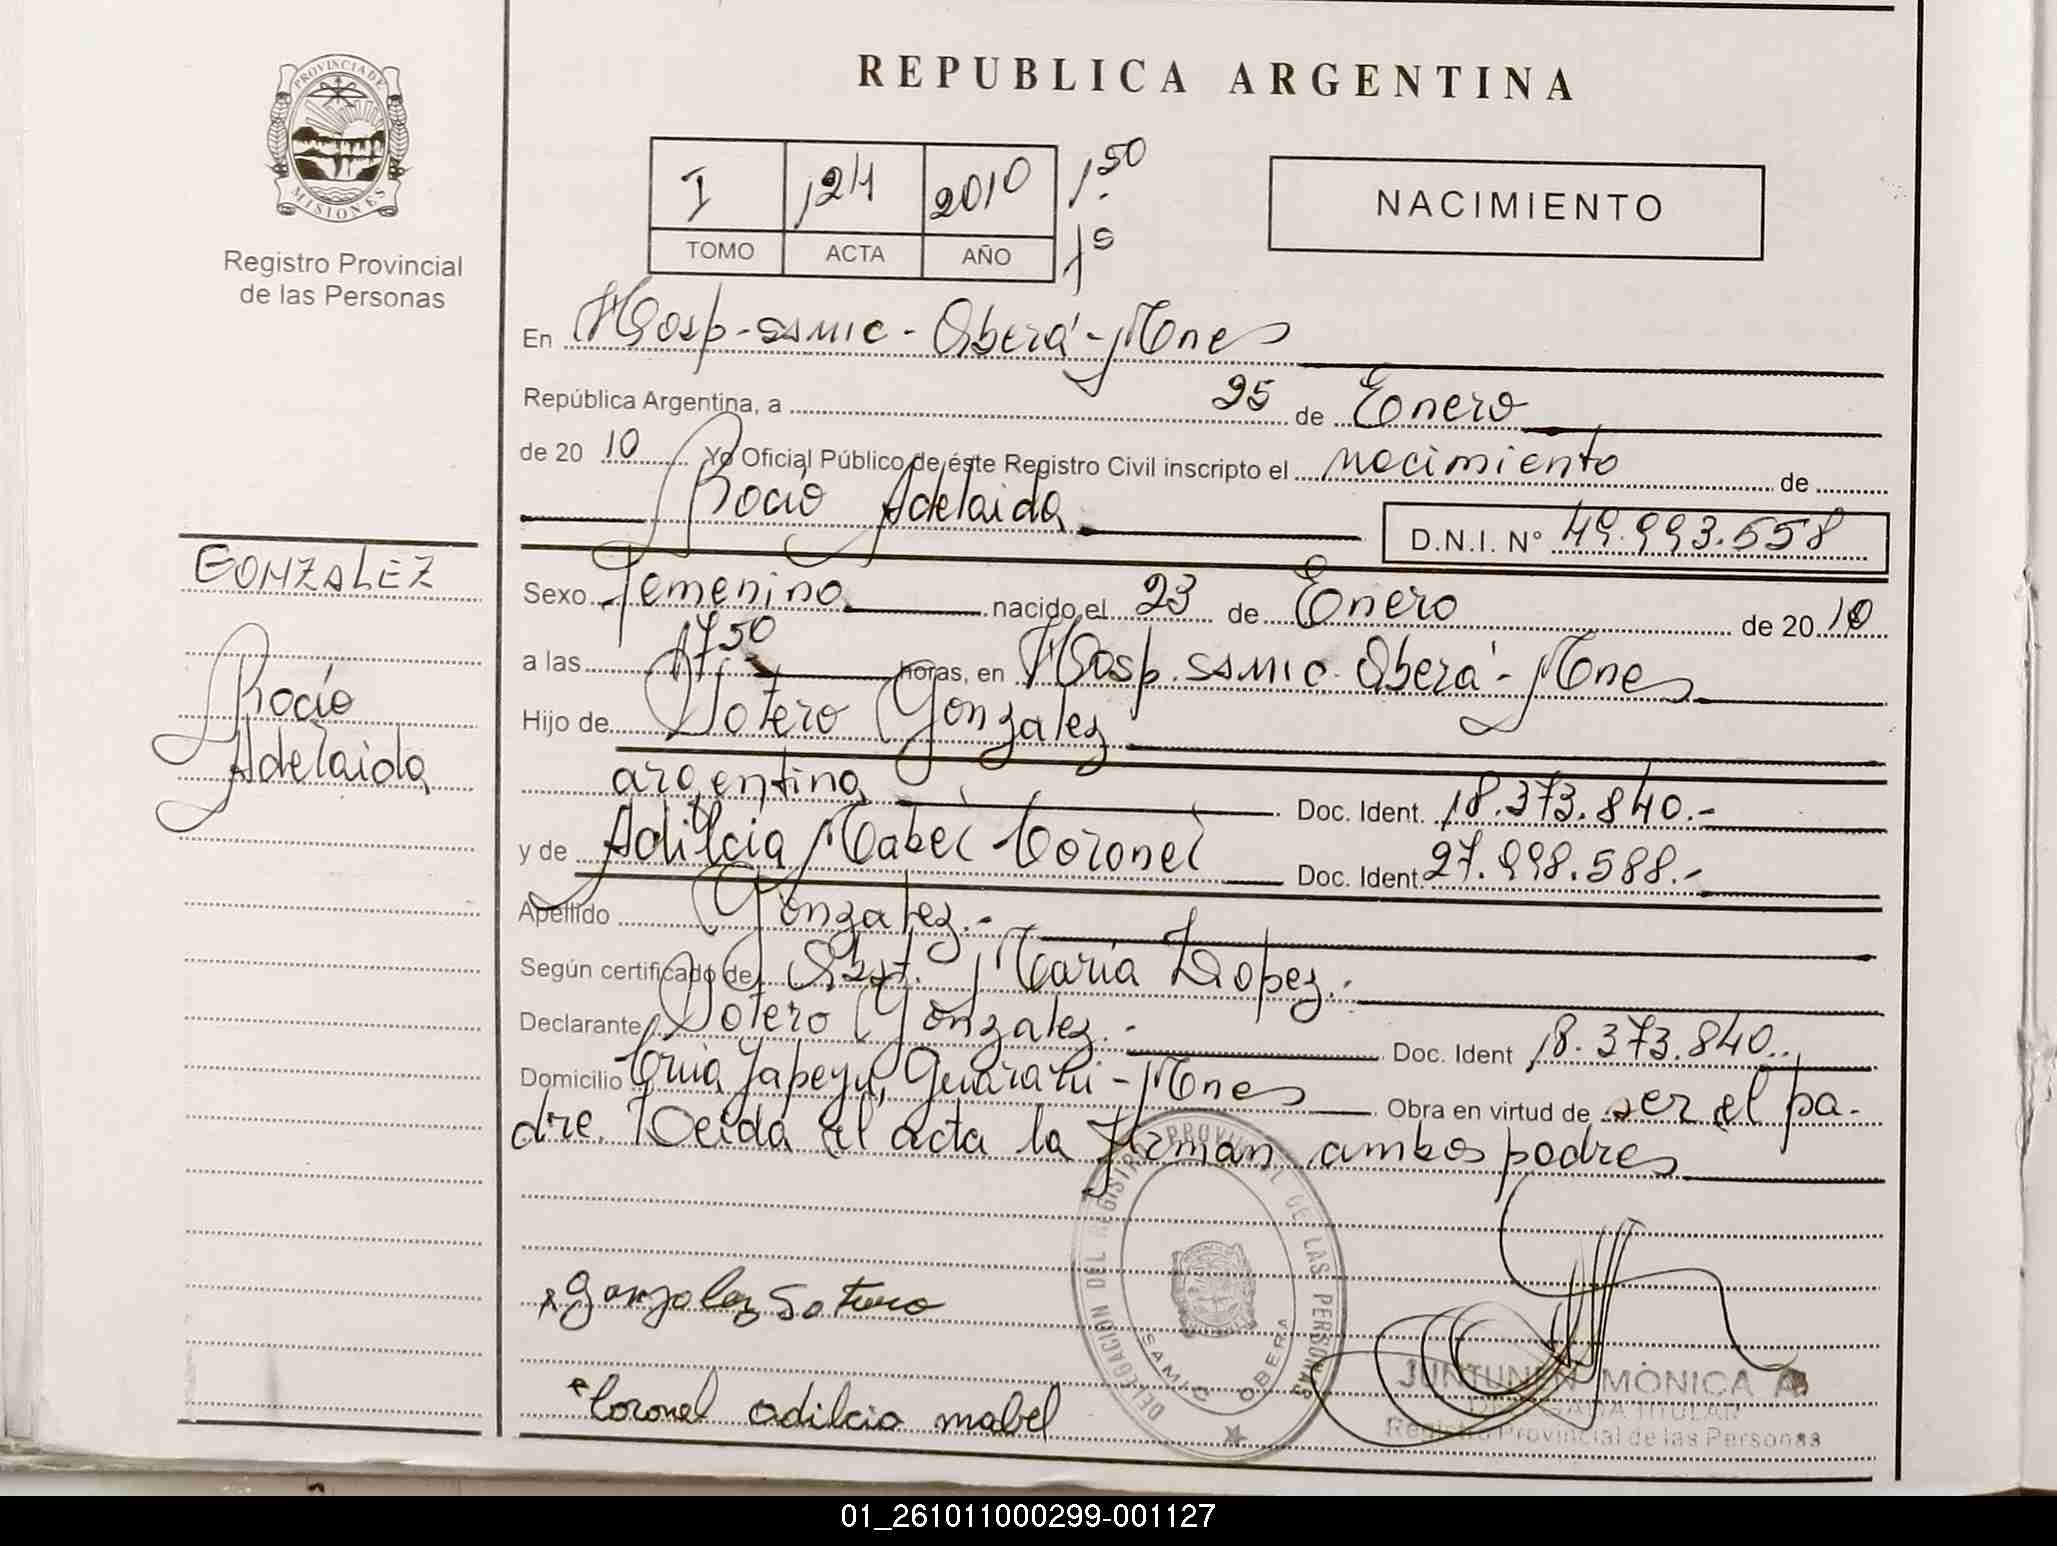 REPUBLICA ARGENTINA
PROVINCIA DE
MISIONES
Registro Provincial
de las Personas
I 124 2010 1.50
TOMO ACTA AÑO
NACIMIENTO
En Hosp-SAMIC-Oberá-Mnes
República Argentina, a 25 de Enero
de 2010 Yo Oficial Público de éste Registro Civil inscripto el nacimiento de
Rocío Adelaida
D.N.I. N° 49.993.558
GONZALEZ
Rocío
Adelaida
Sexo Femenino nacido el 23 de Enero de 2010
a las 1750 horas, en Hosp. SAMIC-Oberá-Mnes
Hijo de Sotero Gonzalez
argentino Doc. Ident. 18.373.840.-
y de Adilcia Mabel Coronel Doc. Ident. 27.998.588.-
Apellido Gonzalez.-
Según certificado de Obst. María Lopez.-
Declarante Sotero Gonzalez.- Doc. Ident 18.373.840.-
Domicilio Yapeyú, Guaraní-Mnes Obra en virtud de ser el pa-
dre. Leída el acta la firman ambos padres
DELEGACION DEL REGISTRO PROVINCIAL DE LAS PERSONAS
SAMIC OBERA
Gonzalez Sotero
Coronel adilcia mabel
JUNTUNEN MONICA A
DELEGADA TITULAR
Registro Provincial de las Personas
01_261011000299-001127